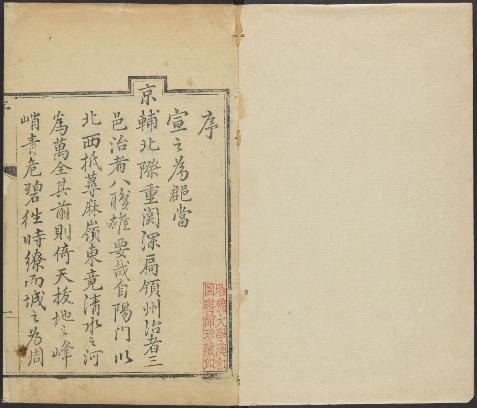 序
宣之為郡當
京輔北際重關深扃領州治者三
邑治者八畯雄要哉自陽門以
北西抵蕁麻嶺東竟清水之河
為萬全其前則倚天拔地之峰
峭青危碧往時繚而城之為周